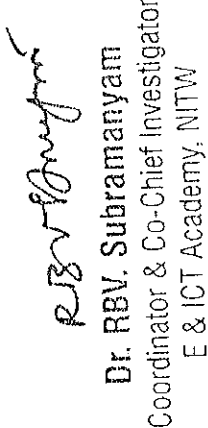 Dr. RBV. Subramanyam
Coordinator & Co-Chief Investigator
E & ICT Academy, NITW